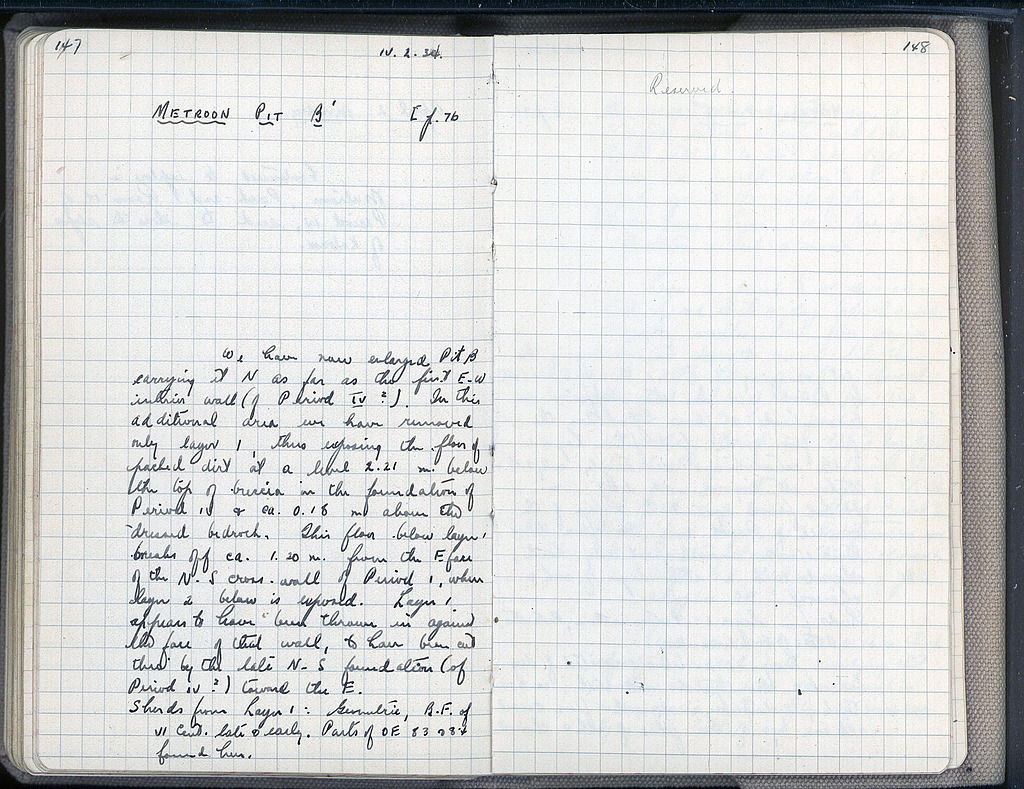 147
IV. 2. 34.
METROON PIT B'
[f. 76
We have now enlarged Pit B
carrying it N as far as the first E-W
interior wall (of Period IV ?). In this
additional area we have removed
only layer 1, thus exposing the floor of
packed dirt at a level 2.21 m. below
the top of breccia in the foundation of
Period IV & ca. 0.18 m above the
dressed bedrock. This floor below layer 1
breaks off ca. 1.20 m. from the E face
of the N-S cross-wall of Period 1, where
layer 2 below is exposed. Layer 1
appears to have been thrown in against
the face of that wall, to have been cut
thro' by the late N-S foundation (of
Period IV ?) toward the E.
Sherds from Layer 1: Geometric, B.F. of
VI Cent. late & early. Parts of OE 83
found here.
148
Reserved.